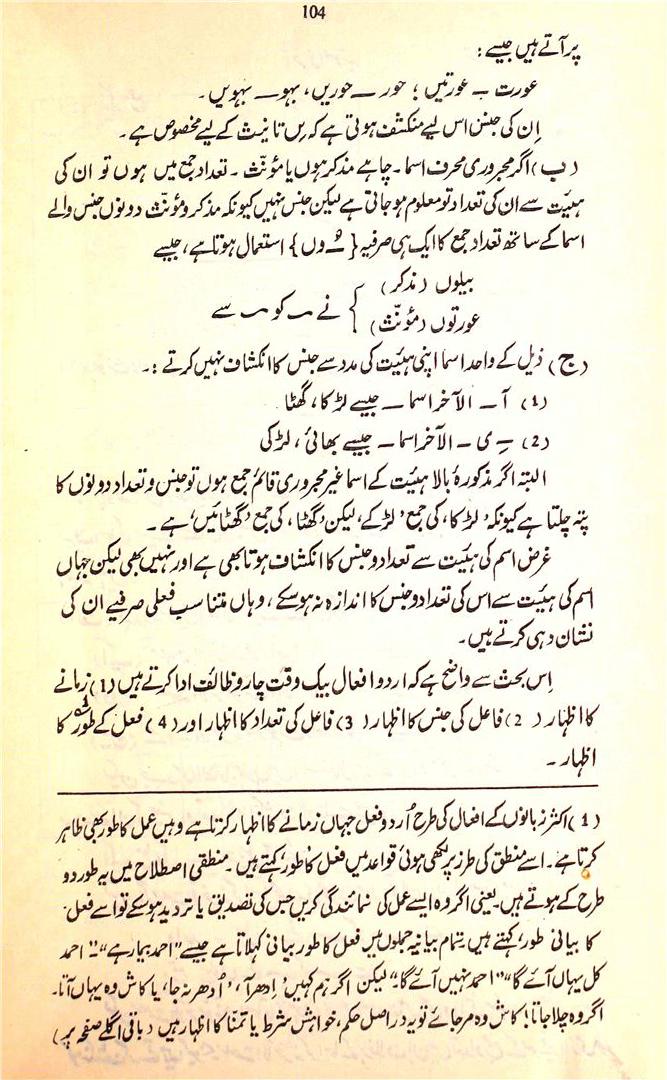 104
پر آتے ہیں جیسے :
عورت ــ عورتیں ؛ حور ــ حوریں، بہو ــ بہویں۔
اِن کی جنس اس لیے منکشف ہوتی ہے کہ یں تانیث کے لیے مخصوص ہے۔
(ب) اگر مجروری محرف اسما۔ چاہے مذکر ہوں یا مؤنّث۔ تعداد جمع میں ہوں تو ان کی
ہیئت سے ان کی تعداد تو معلوم ہو جاتی ہے لیکن جنس نہیں کیونکہ مذکر و مؤنّث دونوں جنس والے
اسما کے ساتھ تعداد جمع کا ایک ہی صرفیہ { ــُـ وں } استعمال ہوتا ہے، جیسے
بیلوں (مذکر)
عورتوں (مؤنّث) } نے ــ کو ــ سے
(ج) ذیل کے واحد اسما اپنی ہیئت کی مدد سے جنس کا انکشاف نہیں کرتے :۔
(1) آ ــ الآخر اسما ــ جیسے لڑکا، گھٹا
(2) ــِ ی ــ الآخر اسما ــ جیسے بھائی، لڑکی
البتہ اگر مذکورۂ بالا ہیئت کے اسما غیر مجروری قائم جمع ہوں تو جنس و تعداد دونوں کا
پتہ چلتا ہے کیونکہ ’لڑکا‘، کی جمع ’لڑکے‘، لیکن ’گھٹا‘، کی جمع ’گھٹائیں‘، ہے۔
غرض اسم کی ہیئت سے تعداد و جنس کا انکشاف ہوتا بھی ہے اور نہیں بھی لیکن جہاں
اسم کی ہیئت سے اس کی تعداد و جنس کا اندازہ نہ ہو سکے، وہاں متناسب فعلی صرفیے ان کی
نشان دہی کرتے ہیں۔
اِس بحث سے واضح ہے کہ اردو افعال بیک وقت چار وظائف ادا کرتے ہیں (1) زمانے
کا اظہار (2) فاعل کی جنس کا اظہار (3) فاعل کی تعداد کا اظہار اور (4) فعل کے طور کا
اظہار۔
(1) اکثر زبانوں کے افعال کی طرح اُردو فعل جہاں زمانے کا اظہار کرتا ہے وہیں عمل کا طور بھی ظاہر
کرتا ہے۔ اسے منطق کی طرز پر لکھی ہوئی قواعد میں فعل کا ’طور‘ کہتے ہیں۔ منطقی اصطلاح میں یہ طور دو
طرح کے ہوتے ہیں یعنی اگر وہ ایسے عمل کی نمائندگی کریں جس کی تصدیق یا تردید ہو سکے تو اسے فعل
کا بیانی ’طور‘ کہتے ہیں۔ تمام بیانیہ جملوں میں فعل کا طور بیانی کہلاتا ہے جیسے "احمد بیمار ہے"۔ "احمد
کل یہاں آئے گا" "احمد نہیں آئے گا" لیکن اگر ہم کہیں ’اِدھر آ، ’اُدھر نہ جا، یا کاش وہ یہاں آتا۔
اگر وہ چلا جاتا! کاش وہ مر جائے تو یہ دراصل حکم، خواہش، شرط یا تمنّا کا اظہار ہیں (باقی اگلے صفحہ پر)